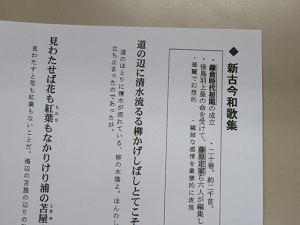 ◆ 新古今和歌集
・鎌倉時代初期の成立
・二十巻。約二千首。
・後鳥羽上皇の命を受けて、藤原定家ら六人が編集し
・華麗で幻想的
・繊細な感情を象徴的に表現
道の辺に清水流るる柳かげしばしとてこそ
道のほとりに清水が流れている、柳の木陰よ。ほんのし
立ち止まったのであったが。
見わたせば花も紅葉もなかりけり浦の苫屋
もみぢ
とまや
見わたすと花も紅葉もないことだ。海辺の苫屋の辺りの